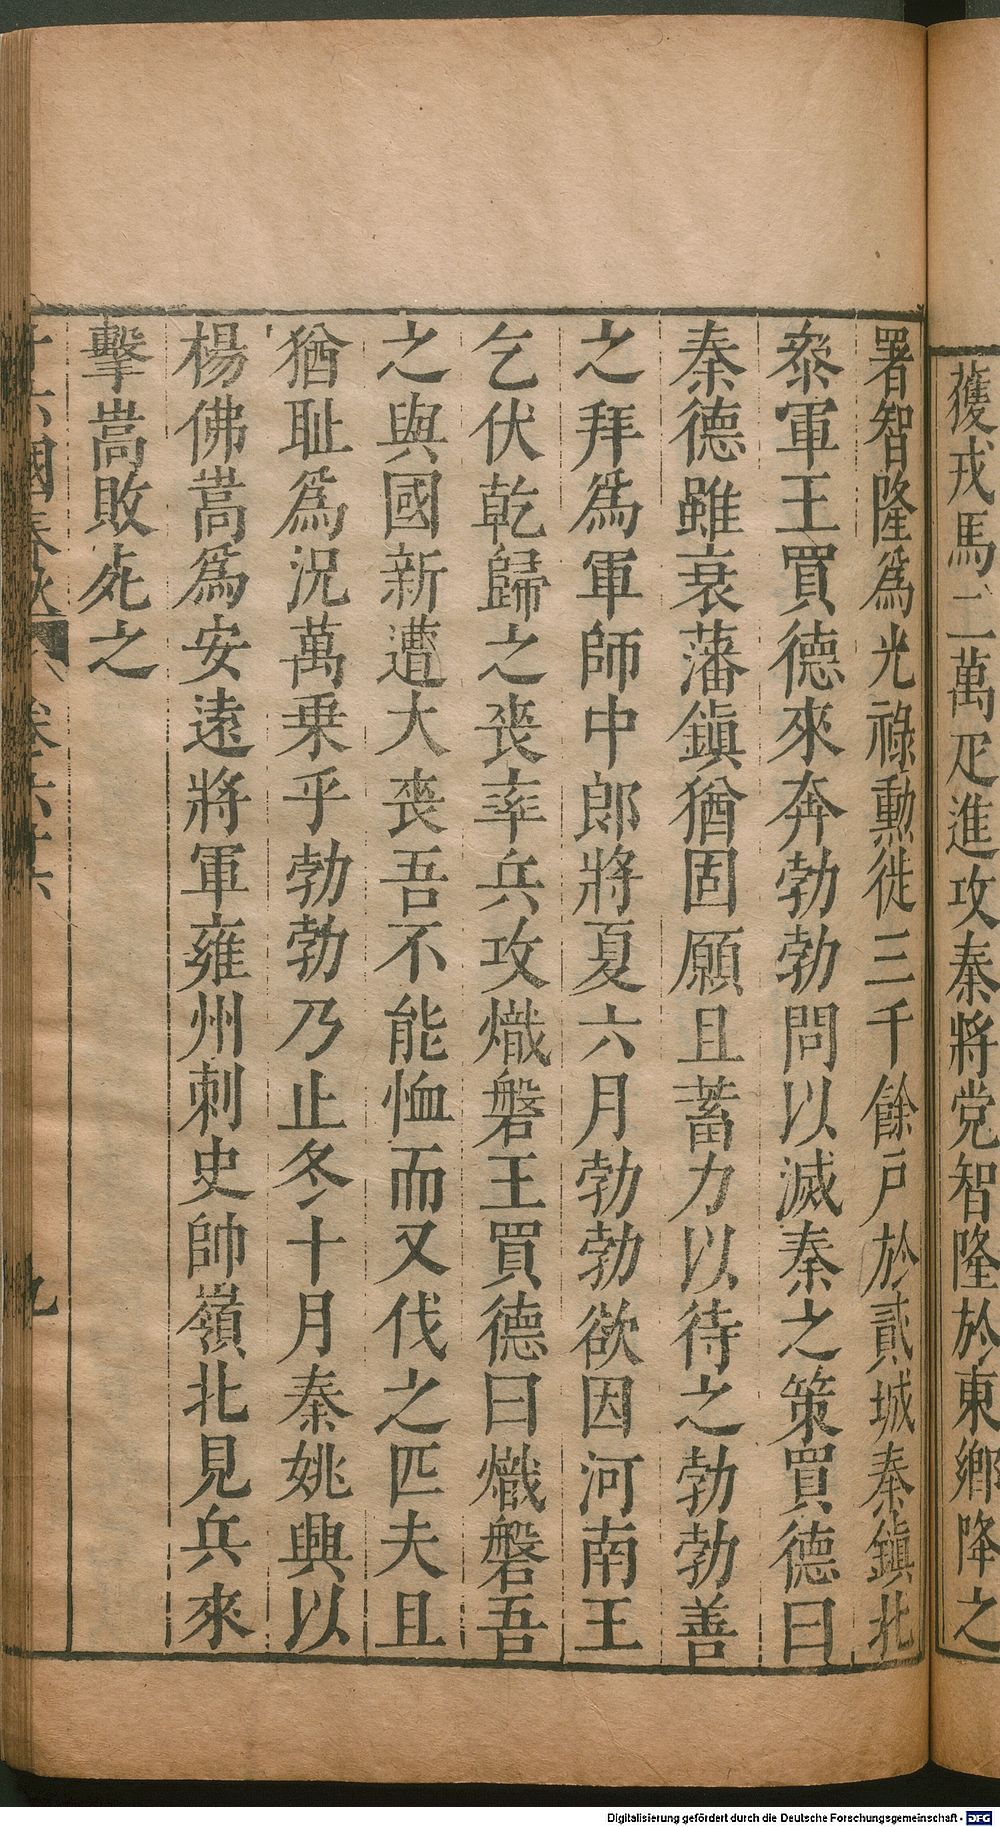 獲戎馬二萬疋進攻秦將党智隆於東鄉降之
署智隆爲光祿勲徙三千餘戶於貳城秦鎭北
叅軍王買德來奔勃勃問以滅秦之策買德曰
秦德雖衰藩鎭猶固願且蓄力以待之勃勃善
之拜爲軍師中郎將夏六月勃勃欲因河南王
乞伏乾歸之丧率兵攻熾磐王買德曰熾磐吾
之與國新遭大喪吾不能恤而又伐之匹夫且
猶耻爲況萬乗乎勃勃乃止冬十月秦姚興以
楊佛嵩爲安遠將軍雍州刺史帥嶺北見兵來
擊嵩敗死之
十六國春秋 卷六十六 九
Digitalisierung gefördert durch die Deutsche Forschungsgemeinschaft - DFG